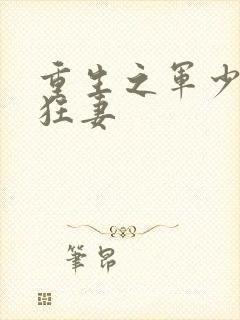 重生之军少
狂妻
笔昂